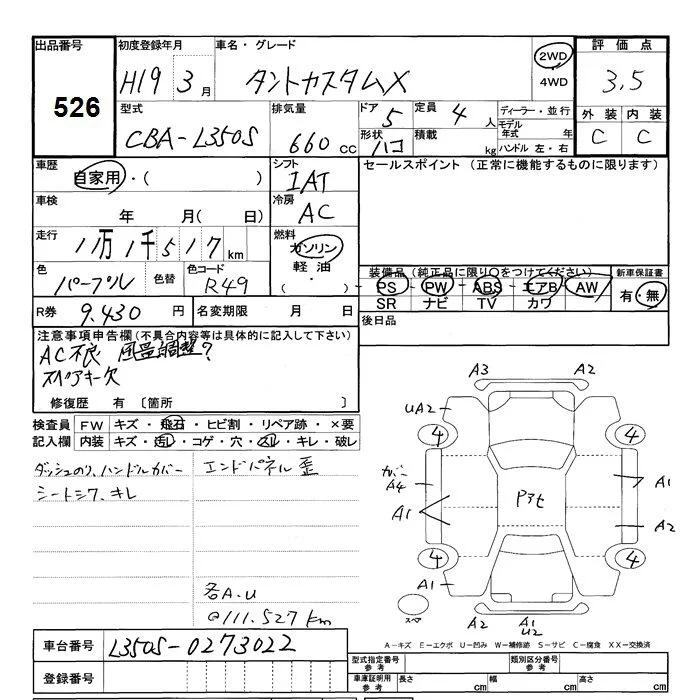 出品番号 初度登録年月 車名・グレード 2WD 評価点
526 H19 3月 タントカスタムX 4WD 3.5
型式 排気量 ドア 定員 ディーラー・並行 外装 内装
CBA-L350S 660cc 5 4人 モデル年式 年 C C
形状 ハコ 積載 kg ハンドル 左・右
車歴 シフト セールスポイント (正常に機能するものに限ります)
自家用・( ) IAT
車検 冷房
年 月( 日) AC
走行 燃料
11万1千517km ガソリン
軽油
・( )
色 色替 色コード 装備品(純正品に限り○をつけてください) 新車保証書
パープル R49 PS・PW・ABS・エアB・AW 有・無
SR ナビ TV カワ
R券 9.430円 名変期限 月 日 後日品
注意事項申告欄(不具合内容等は具体的に記入して下さい)
AC不良 風量調整?
スペアキー欠
修復歴 有 〔箇所 〕
検査員 FW キズ・飛石・ヒビ割・リペア跡・×要
記入欄 内装 キズ・汚レ・コゲ・穴・スレ・キレ・破レ
ダッシュのり、ハンドルカバー エンドパネル歪
シートシワ、キレ
各A.U
@111.527km
A3 A2
UA2
4 4
カバー
A4 Pタセ A1
A1 A2
4 4
A1 A1
スペア A2 A1 A2
U2
A-キズ E-エクボ U-凹み W-補修跡 S-サビ C-腐食 XX-交換済
車台番号 L350S-0273022
登録番号
型式指定番号 参考 類別区分番号 参考
車庫証明用 参考 長さ cm 幅 cm 高さ cm